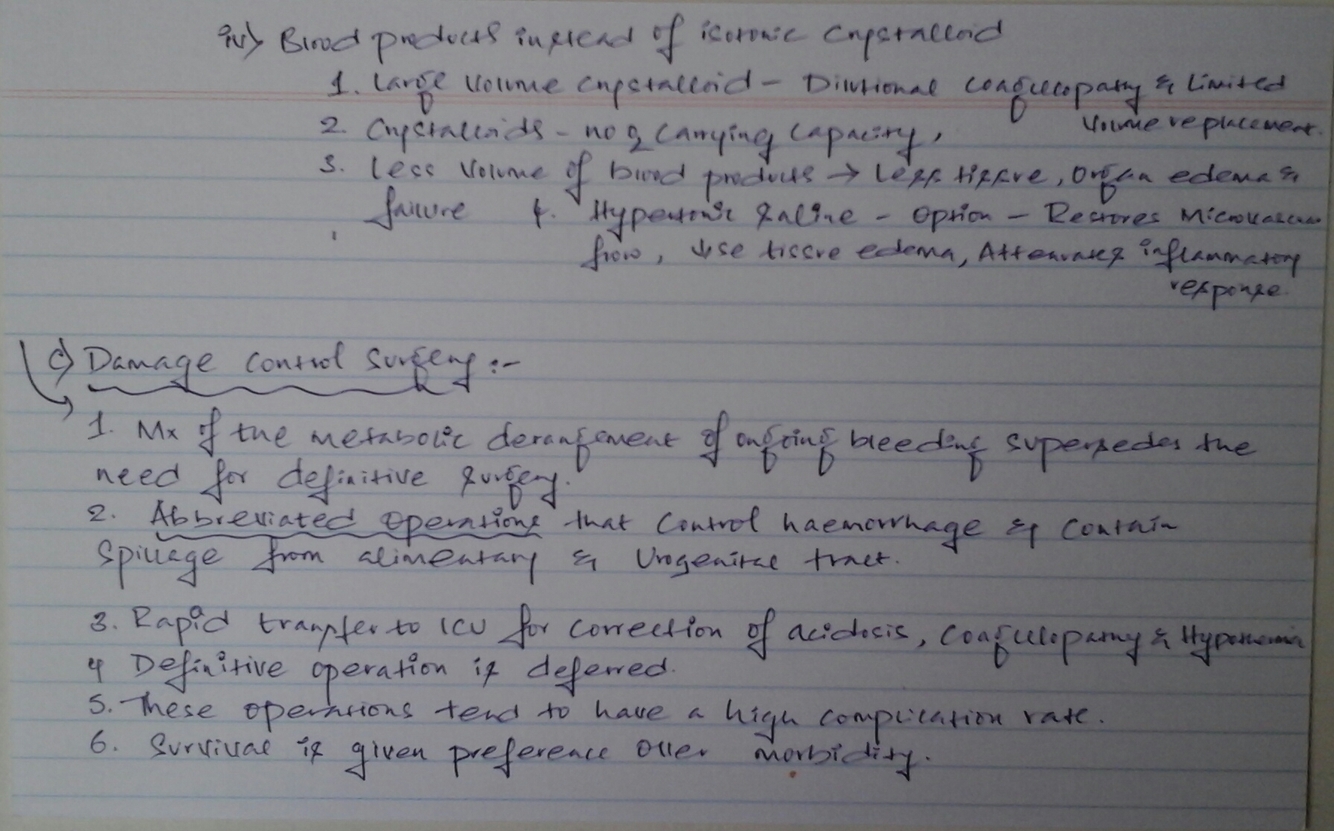 iv) Blood products instead of isotonic crystalloid
1. Large volume crystalloid - Dilutional coagulopathy & Limited
volume replacement.
2. Crystalloids - no O2 carrying capacity,
3. Less volume of blood products → Less tissue, organ edema &
failure 4. Hypertonic saline - option - Restores Microvascular
flow, ↓se tissue edema, Attenuates inflammatory
response.
c) Damage control surgery :-
1. Mx of the metabolic derangement of ongoing bleeding supersedes the
need for definitive surgery.
2. Abbreviated operations that control haemorrhage & contain
spillage from alimentary & Urogenital tract.
3. Rapid transfer to ICU for correction of acidosis, coagulopathy & Hypothermia
4 Definitive operation is deferred.
5. These operations tend to have a high complication rate.
6. Survival is given preference over morbidity.